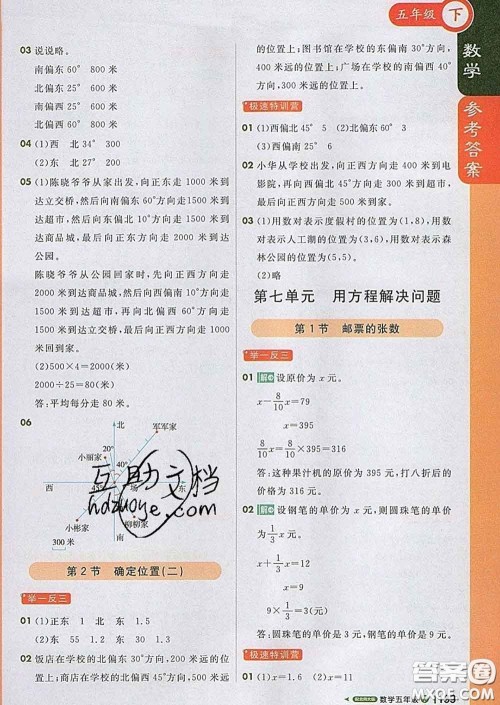 五年级 下
数学
参考答案
03 说说略。
南偏东60° 800米
北偏东25° 600米
南偏西25° 600米
北偏西60° 800米
04 (1)西 北 34° 300
(2)东 北 27°
05 (1)陈晓爷爷从家出发,向正东走1000米到
达立交桥,然后向南偏东60°方向走1500米到
达超市,然后向北偏东30°方向走1500米到达
商品城,最后向正东方向走2000米到达公园。
陈晓爷爷从公园回家时,先向正西方向走
2000米到达商品城,然后向南偏西30°方向走
1500米到达超市,然后向北偏西60°方向走
1500米到达立交桥,最后向正西方向走1000
米到家。
(2)500×4=2000(米)
2000÷25=80(米)
答:平均每分走80米。
06
北
军军家
小丽家
40°
西
45°
场
东
小彬家
柳柳家
南
300米
互助文档
hdzuoye.com
第2节 确定位置(二)
举一反三
01 (1)正东 1 北 东 1.5
(2)东 55 东 北 30 1.3
02 饭店在学校的北偏东30°方向,500米远的位置
上;商店在学校的北偏西60°方向,400米远
的位置上;图书馆在学校的东偏南30°方向,
400米远的位置上;广场在学校的南偏西40°
方向,300米远的位置上。
极速特训营
01 (1)西偏北45° 5 (2)北偏西60° 3
(3)西偏南25° 6
02 小华从学校出发,向北偏东40°走400米到电
影院,再向西偏南45°方向走300米到超市,最
后向正西走200米到家。
03 (1)用数对表示度假村的位置为(1,8),用数
对表示人工湖的位置为(3,6),用数对表示森
林公园的位置为(6,5)。
(2)略
第七单元 用方程解决问题
第1节 邮票的张数
举一反三
01 解 设原价为x元。
x-8/10x=79
x=395
8/10x=8/10×395=316
答:这种果汁机的原价为395元,打八折后的
价格为316元。
02 解 设钢笔的单价为x元,则圆珠笔的单价
为1/3x元。
x+1/3x=12
x=9
9×1/3=3(元)
答:圆珠笔的单价是3元,钢笔的单价是9元。
极速特训营
01 (1)x=1.6 (2)x=11
数学五年级
答案圈
MXQE.COM